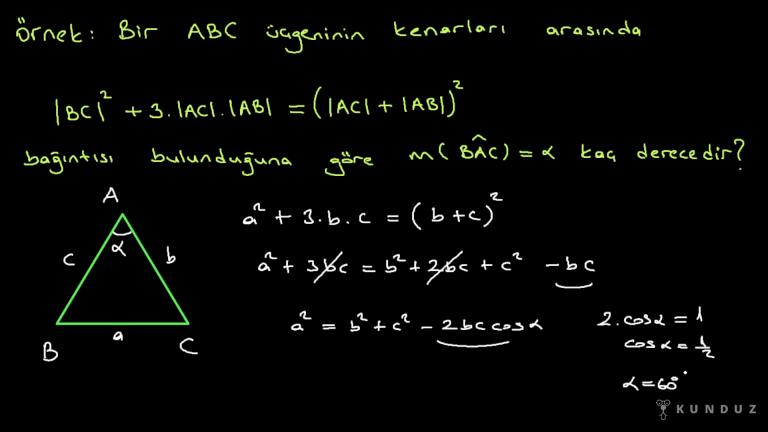 Örnek: Bir ABC üçgeninin kenarları arasında
|BC|² + 3.|AC|.|AB| = (|AC| + |AB|)²
bağıntısı bulunduğuna göre m(BÂC) = α kaç derecedir?
A
α
c
b
a
B
C
a² + 3.b.c = (b+c)²
a² + 3bc = b² + 2bc + c² - bc
a² = b² + c² - 2bc cosα
2.cosα = 1
cosα = 1/2
α = 60°
KUNDUZ